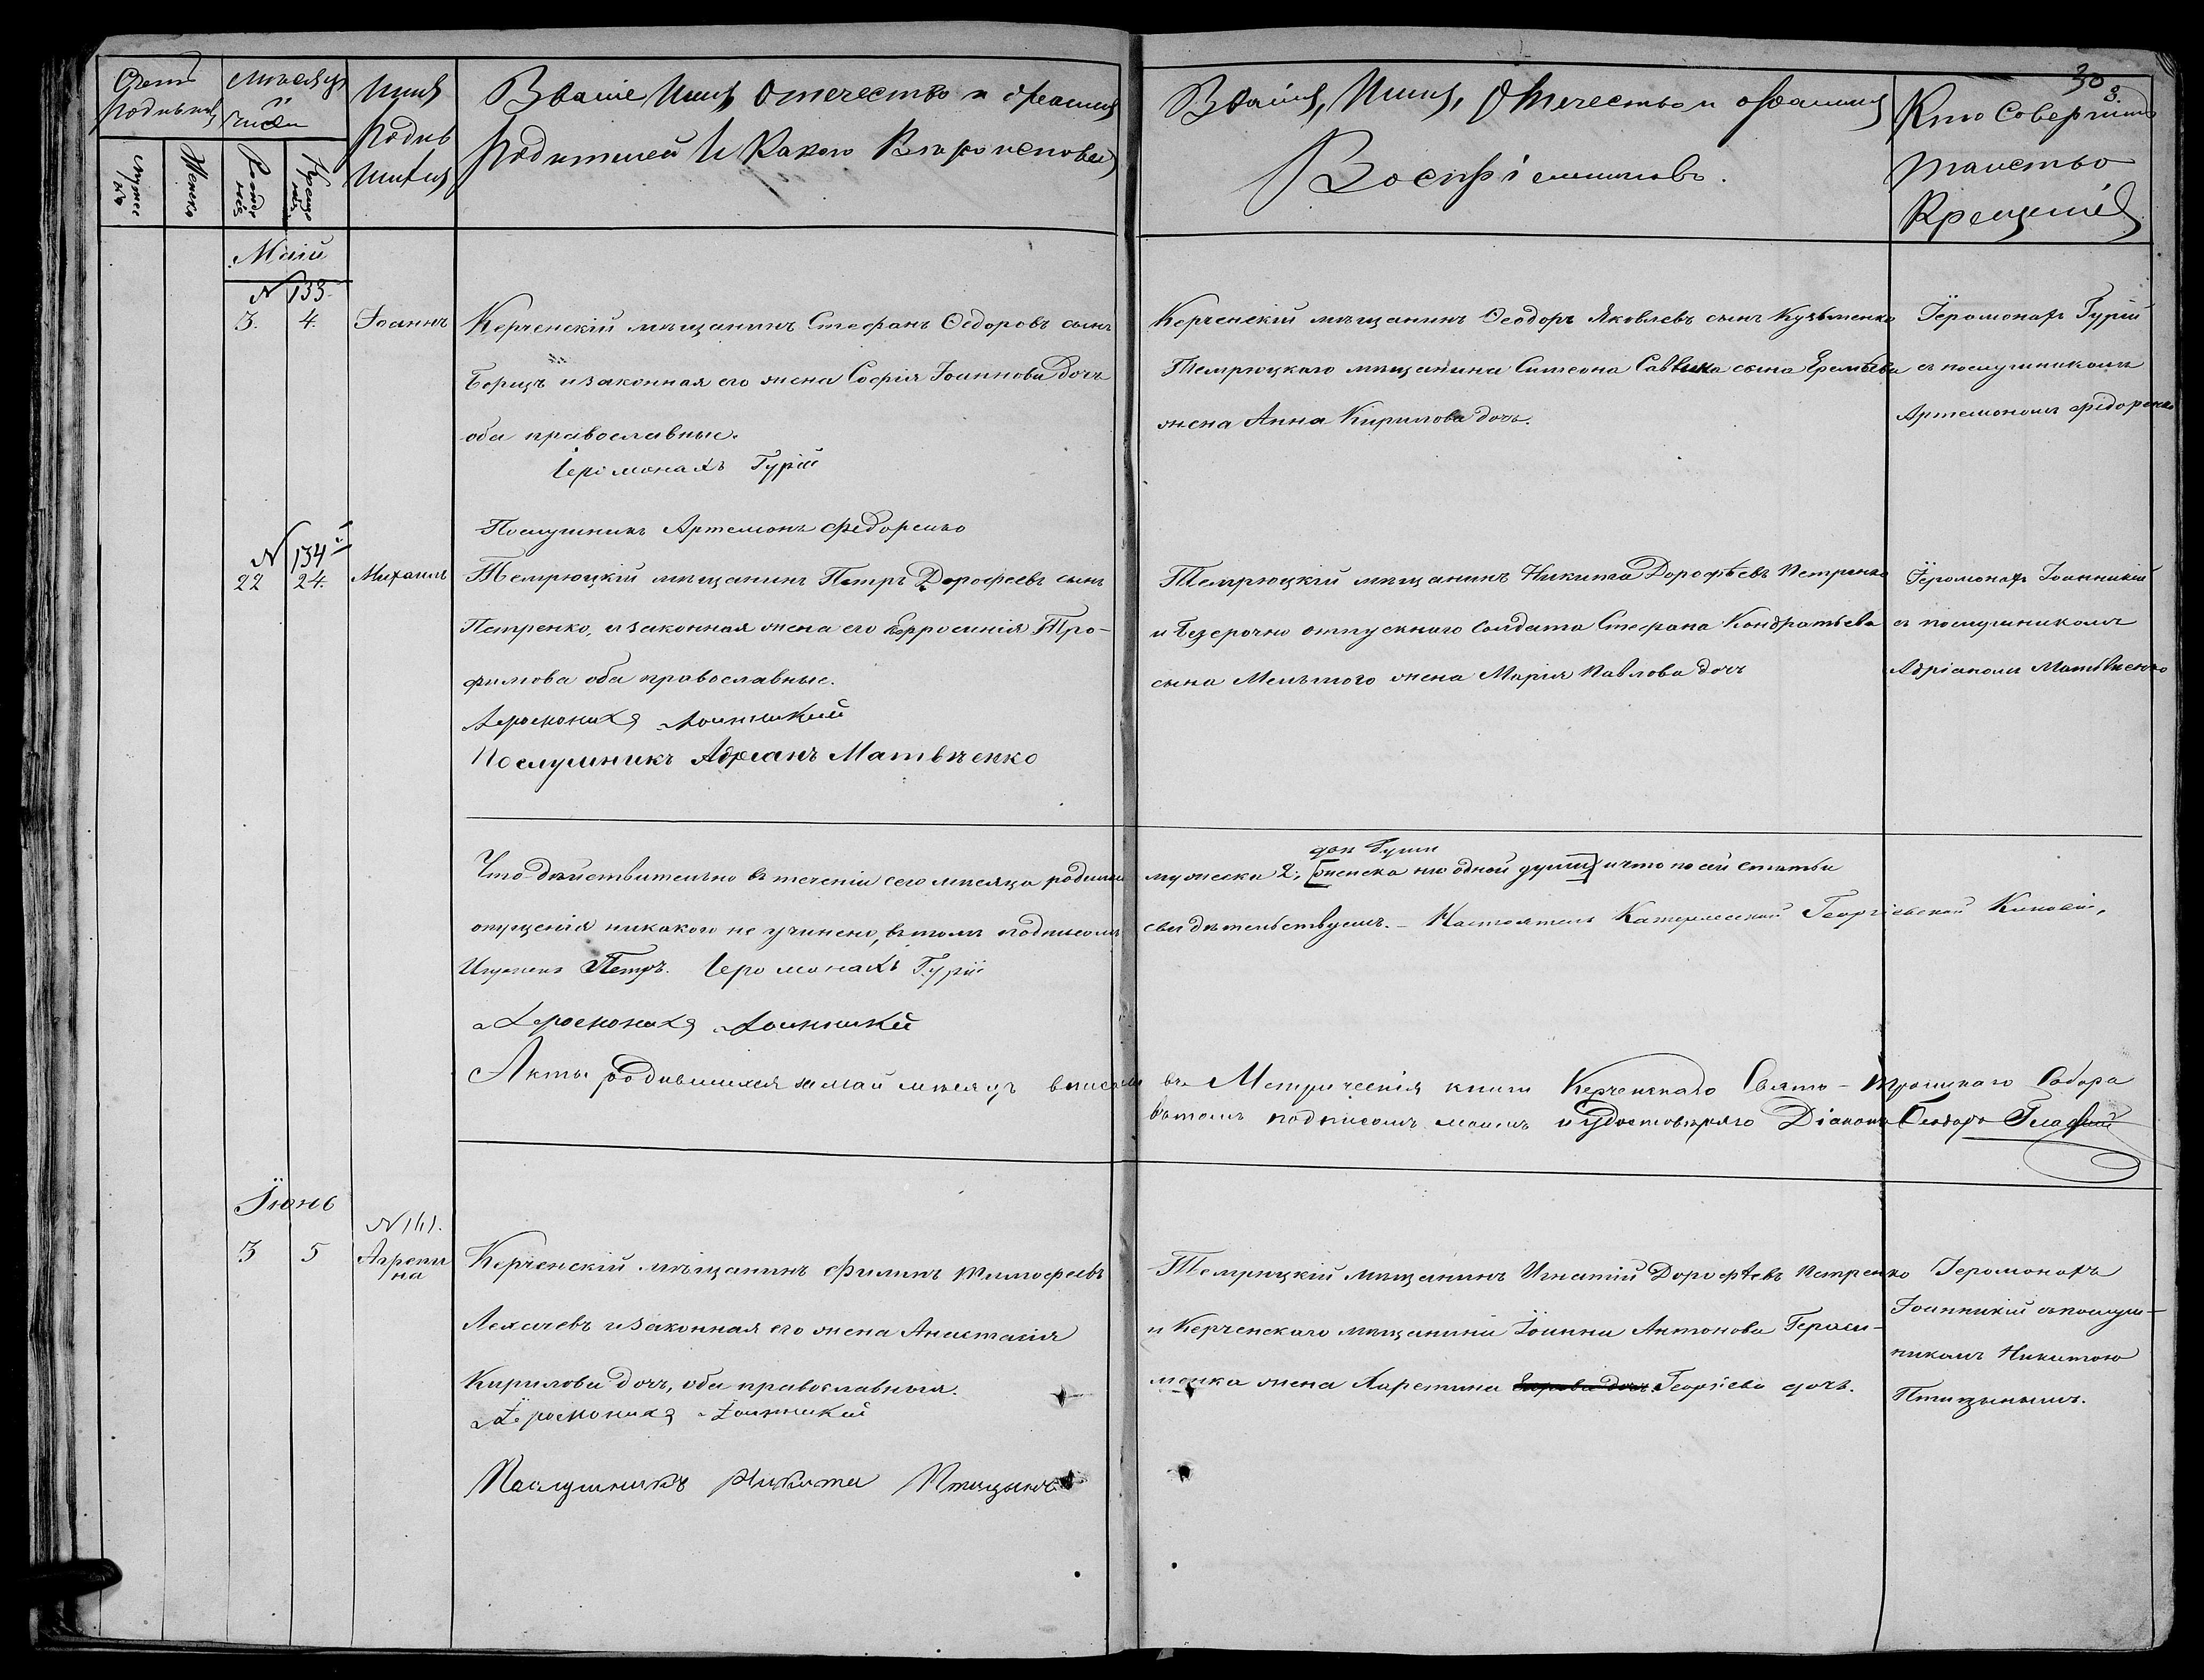 30
3.
Счетъ Родивших
Мужес къ
Женска
Мѣсяцъ и Числ
Рожде нія
Креще нія
Имя Родив шихся
Званіе Имя, Отечество и Фамилія
Родителей И Какого Вѣроисповед
Званія, Имия, Отечество и Фамилия
Воспріемниковъ.
Кто Совершилъ
таинство
Крещенія
Маій
N 133
3. 4. Іоаннъ
Керченскій мѣщанинъ Стефанъ Ѳедоровъ сынъ
Борецъ и законная его жена Софія Іоаннова дочь
оба православные.
Іеромонахъ Гурій
Послушникъ Артемонъ Федоренко
Керченскій мѣщанинъ Ѳеодоръ Яковлевъ сынъ Кузьменко
Темрюцкаго мѣщанина Симеона Саввина сына Еремѣева
жена Анна Кирилова дочь.
Іеромонахъ Гурій
съ послушникомъ
Артемономъ Федоренко
N 134
22 24. Михаилъ
Темрюцкій мѣщанинъ Петръ Дорофеевъ сынъ
Петренко, и законная жена его Ефросинія Тро-
фимова оба православные.
Іеромонахъ Іоанникій
Послушникъ Адріанъ Матвѣенко
Темрюцкій мѣщанинъ Никита Дорофѣевъ Петренко
и безсрочно отпускного солдата Стефана Кондратьева
сына Мельтого жена Марія Павлова дочь
Іеромонахъ Іоанникій
съ послушникомъ
Адріаномъ Матвѣенко
Что дѣйствительно въ теченіи сего мѣсяца родилось мужеска 2, [женска ни одной души] и что по сей статьи
две души
опущенія никакого не учинено, въ томъ подписомъ свидѣтельствуемъ. – Настоятель Катерлесской Георгіевской Киновіи,
Игуменъ Петръ. Іеромонахъ Гурій
Іеромонахъ Іоанникій
Акты родившихся за май мѣсяцъ вписаны въ Метрическія книги Керченскаго Свято-Троицкаго Собора
въ томъ подписомъ моимъ и удостовѣряю Діаконъ Ѳеодоръ
Іюнь
N 141.
3 5 Агрепи на
Керченскій мѣщанинъ Филипъ Тимофеевъ
Лехачевъ и законная его жена Анастасія
Кирилова дочь, оба православныя.
Іеромонахъ Іоанникій
Послушникъ Никита Птицынъ
Темрюцкій мѣщанинъ Игнатій Дорофѣевъ Петренко
и Керченскаго мѣщанина Іоанна Антонова Гераси-
менка жена Харетина Георгіева дочь.
Іеромонахъ
Іоанникій съ послуш-
никомъ Никитою
Птицынымъ.